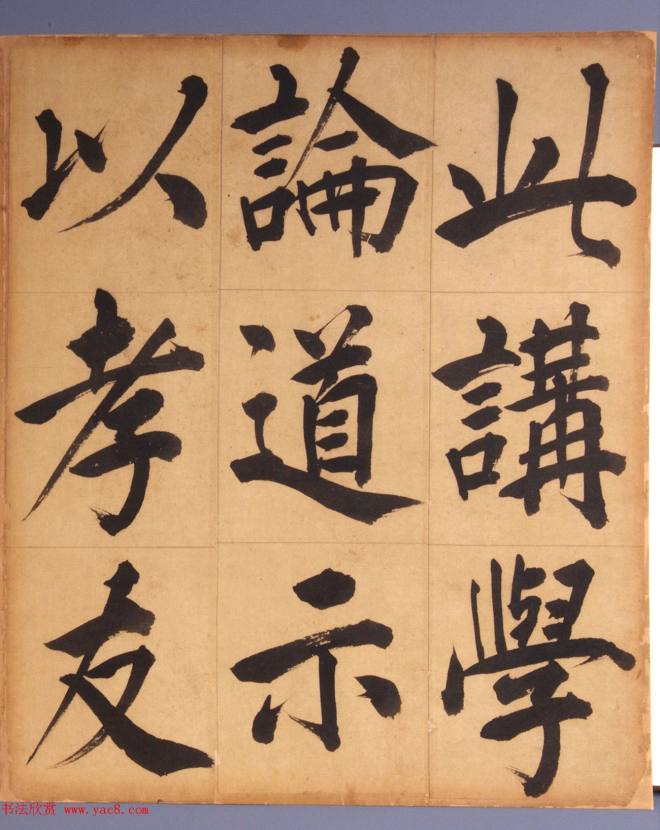 此講學
論道示
以孝友
书法欣赏 www.yac8.com